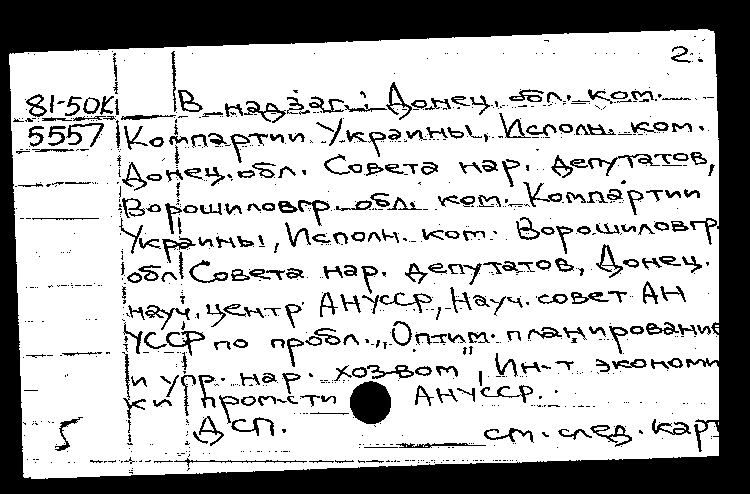 2.
81-50К В надзаг.: Донец. обл. ком.
5557 Компартии Украины, Исполн. ком.
Донец. обл. Совета нар. депутатов,
Ворошиловгр. обл. ком. Компартии
Украины, Исполн. ком. Ворошиловгр.
обл Совета нар. депутатов, Донец.
науч. центр АНУССР, Науч. совет АН
УССР по пробл. „Оптим. планирование
и упр. нар. хоз-вом", Ин-т экономи
ки пром-сти АНУССР.
5 ДСП. см. след. карт